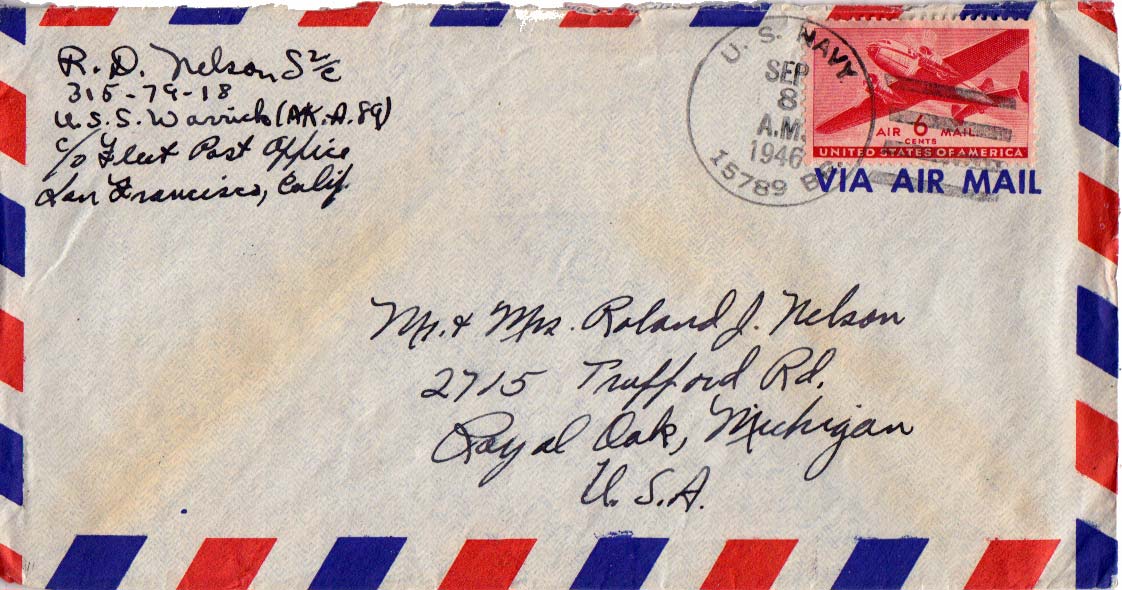 R. D. Nelson S2/c
315-79-18
U.S.S. Warrick (AK.A. 89)
c/o Fleet Post Office
San Francisco, Calif.
U. S. NAVY
SEP
8
A.M.
1946
15789 B
AIR 6 MAIL
CENTS
UNITED STATES OF AMERICA
VIA AIR MAIL
Mr. & Mrs. Roland J. Nelson
2715 Trafford Rd.
Royal Oak, Michigan
U.S.A.